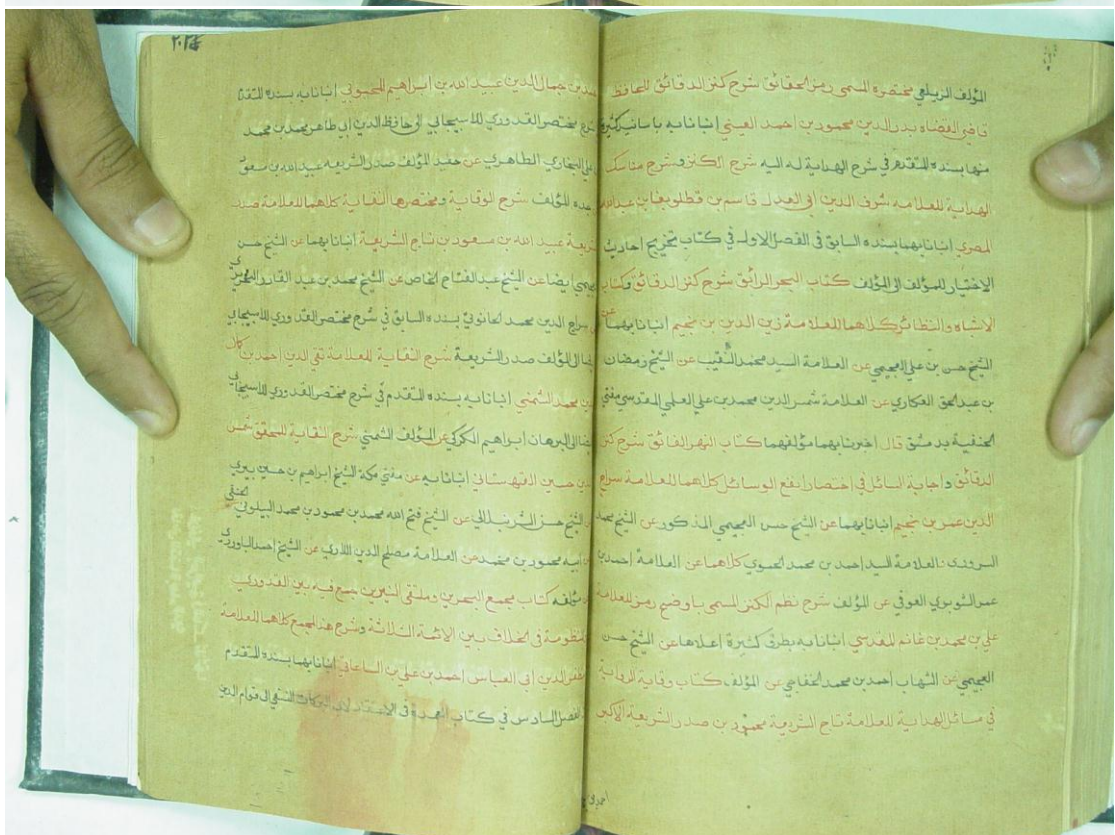 المؤلف الزيلعي مختصره المسمى رمز الحقائق شرح كنز الدقائق للحافظ
قاضي القضاه بدر الدين محمود بن احمد العيني انبانا به باسانيد كثيرة
منها بسنده المتقدم في شرح الهداية له اليه شرح الكنز وشرح مناسك
الهداية للعلامه شرف الدين ابي العدل قاسم بن قطلوبغا بن عبدالله
المصري انبانا بهما بسنده السابق في الفصل الاول في كتاب تخريج احاديث
الاختيار للمؤلف الى المؤلف كتاب البحر الرائق شرح كنز الدقائق وكتاب
الاشباه والنظائر كلاهما للعلامة زين الدين بن نجيم انبانا بهما عن
الشيخ حسن بن علي العجيمي عن العلامة السيد محمد النقيب عن الشيخ رمضان
بن عبد الحق العكاري عن العلامة شمس الدين محمد بن علي العلمي المقدسي مفتي
الحنفية بدمشق قال اخبرنا بهما مؤلفهما كتاب النهر الفائق شرح كنز
الدقائق واجابة السائل في اختصار انفع الوسائل كلاهما للعلامة سراج
الدين عمر بن نجيم انبانا بهما عن الشيخ حسن العجيمي المذكور عن الشيخ محمد
السروري والعلامة السيد احمد بن محمد الحموي كلاهما عن العلامة احمد بن
عمر الشوبري العوفي عن المؤلف شرح نظم الكنز المسمى باوضح رمز للعلامة
علي بن محمد بن غانم المقدسي انبانا به بطرق كثيرة اعلاها عن الشيخ حسن
العجيمي عن الشهاب احمد بن محمد الخفاجي عن المؤلف كتاب وقاية الرواية
في مسائل الهداية للعلامة تاج الشريعة محمود بن صدر الشريعة الاكبر
احمد بن
جمال الدين عبيد الله بن ابراهيم المحبوبي انبانا به بسنده المتقدم
شرح مختصر القدوري للاسبيجابي الى حافظ الدين ابي طاهر محمد بن محمد
علي البخاري الطاهري عن حفيد المؤلف صدر الشريعه عبيد الله بن مسعود
جده المؤلف شرح الوقاية ومختصرها النقاية كلاهما للعلامة صدر
الشريعة عبيد الله بن مسعود بن تاج الشريعة انبانا بهما عن الشيخ حسن
العجيمي ايضا عن الشيخ عبد الفتاح الخاص عن الشيخ محمد بن عبد القادر
سراج الدين محمد الحانوتي بسنده السابق في شرح مختصر القدوري للاسبيجابي
ايضا الى المؤلف صدر الشريعة شرح النقاية للعلامة تقي الدين احمد بن
محمد الشمني انبانا به بسنده المتقدم في شرح مختصر القدوري للاسبيجابي
ايضا الى البرهان ابراهيم الكركي عن المؤلف الشمني شرح النقاية للمحقق شمس
الدين حسين القهستاني انبانا به عن مفتي مكة الشيخ ابراهيم بن حسين بيري
الشيخ حسن الشرنبلالي عن الشيخ فتح الله محمد بن محمود بن محمد البيلوني الحنفي
عن ابيه محمود بن محمد عن العلامة مصلح الدين اللاري عن الشيخ احمد
مؤلفه كتاب مجمع البحرين وملتقى النيرين جمع فيه بين القدوري
والمنظومة في الخلاف بين الائمة الثلاثة وشرح هذا المجمع كلاهما للعلامة
مظفر الدين ابي العباس احمد بن علي بن الساعاتي انبانا بهما بسنده المتقدم
الفصل السادس في كتاب العمدة في الاعتقاد لابي البركات النسفي الى قوام الدين